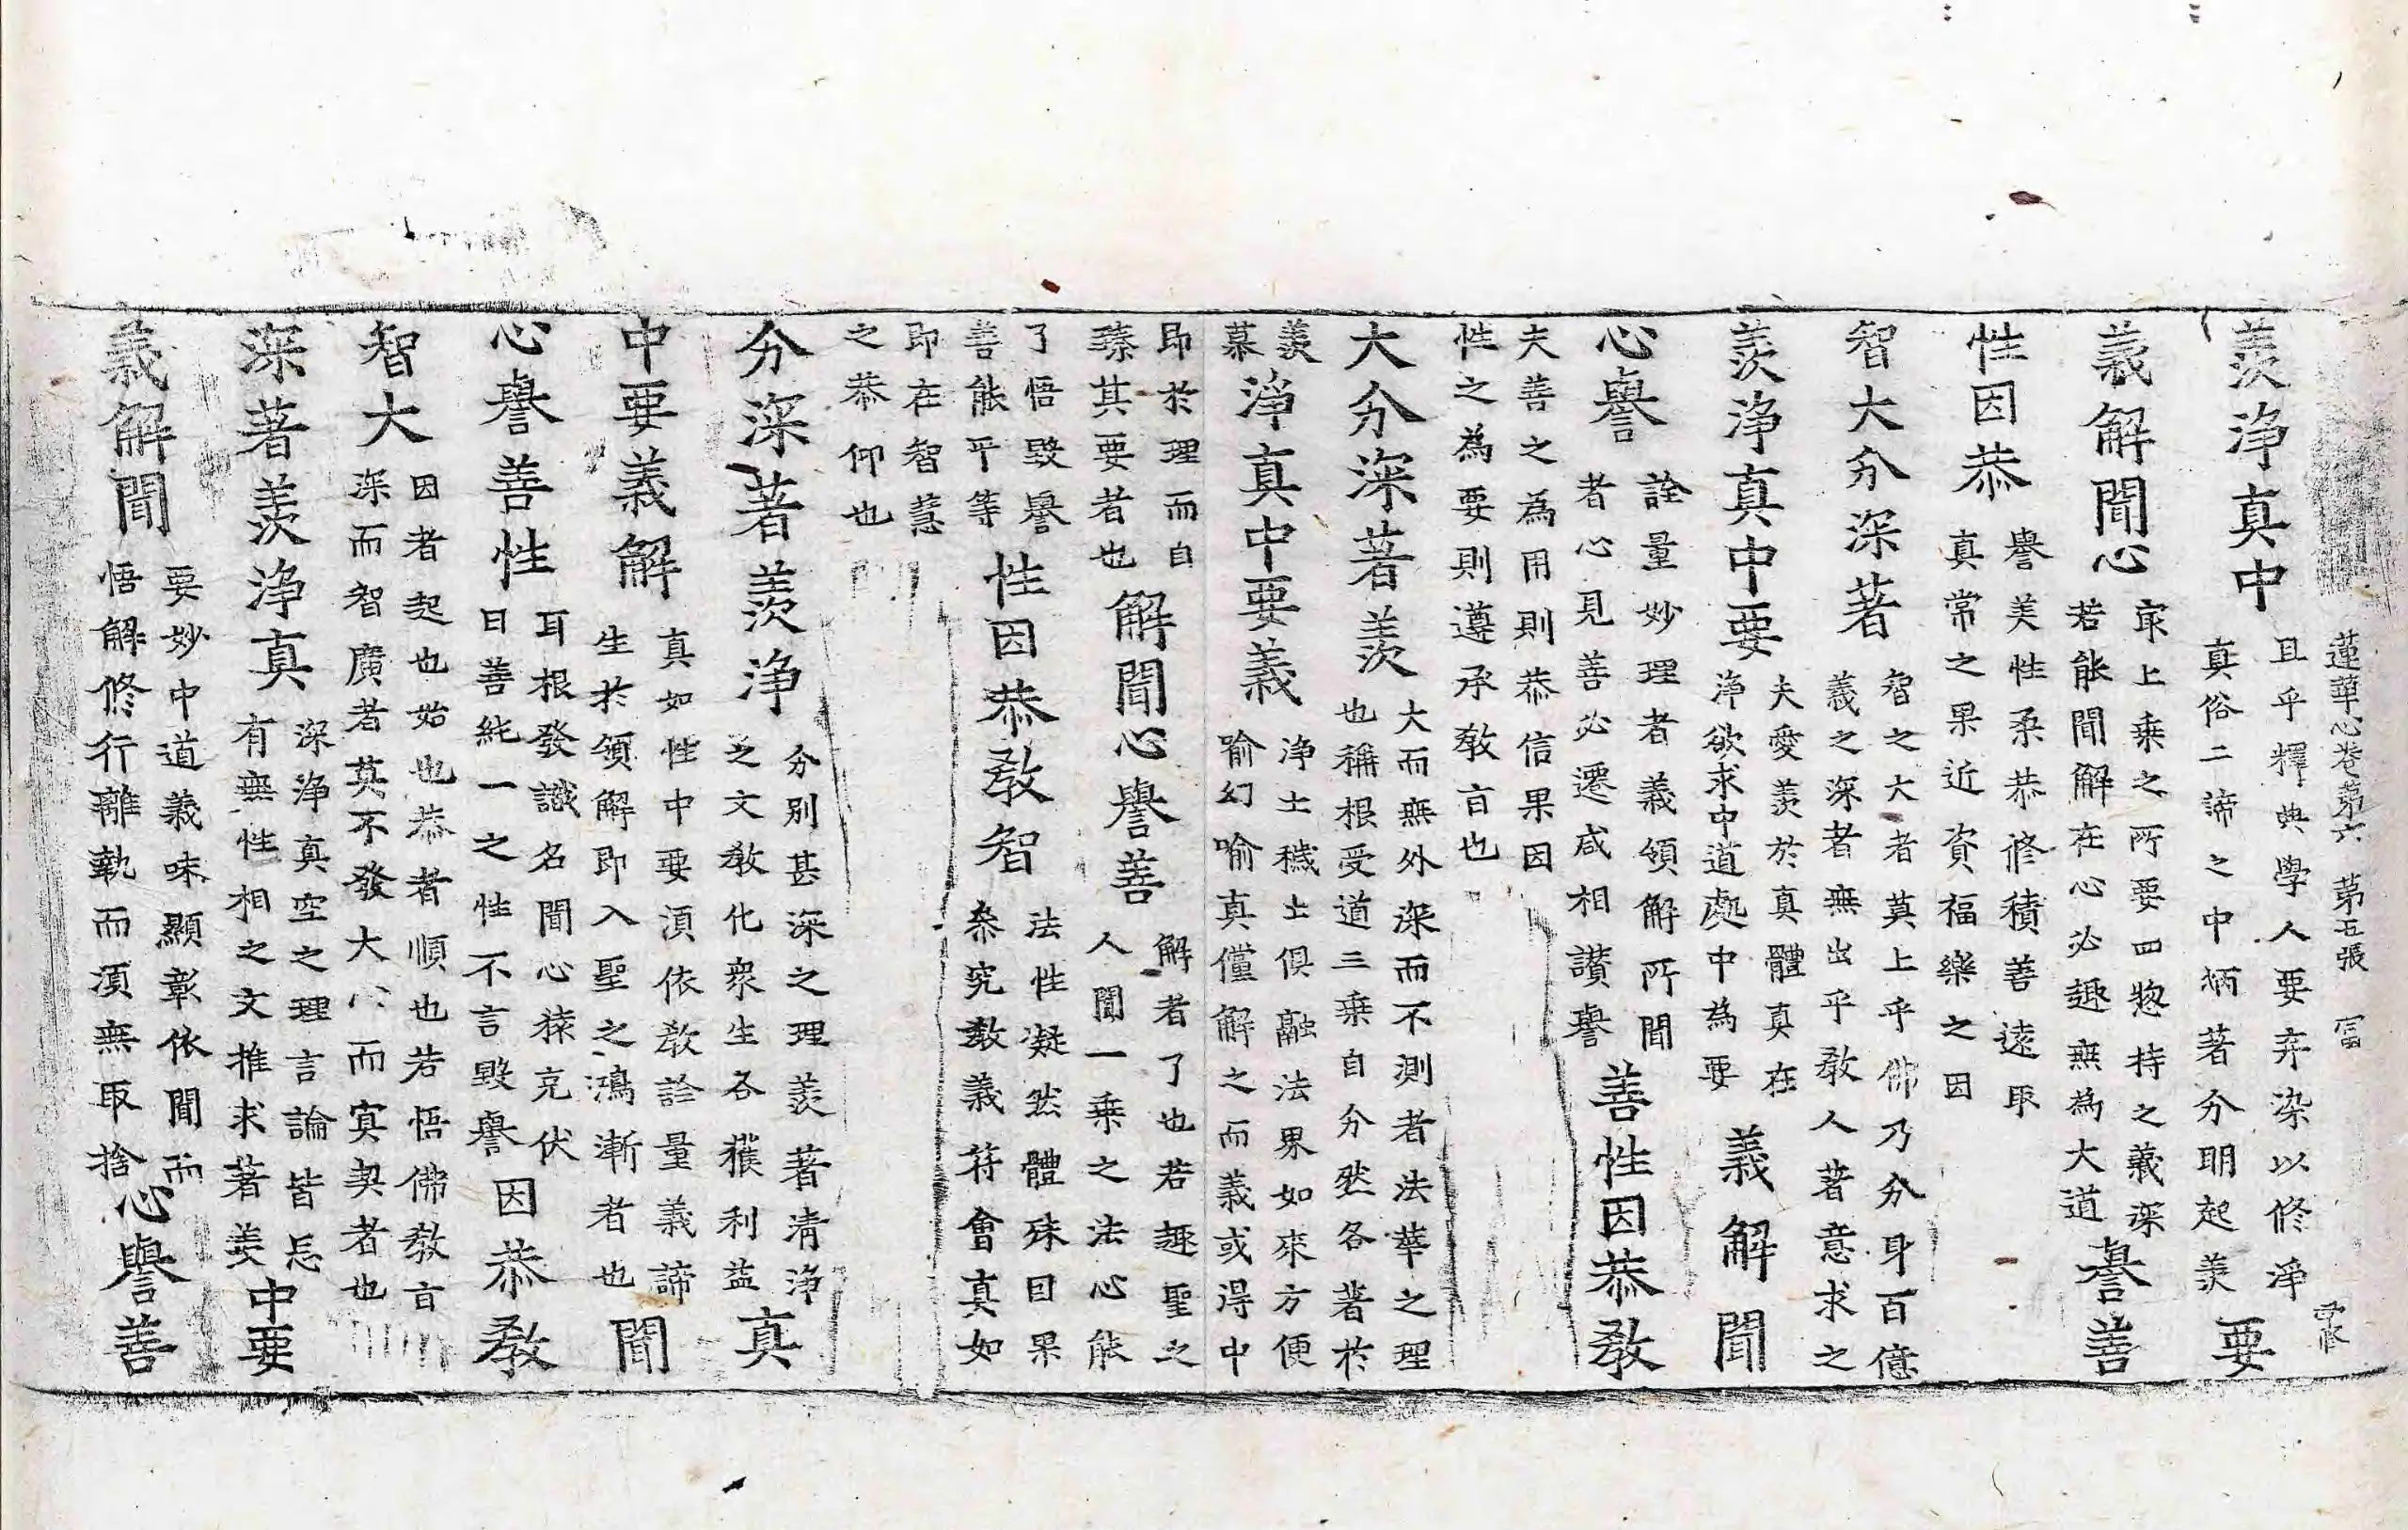 蓮華心卷第六 第五張 冨
羨淨真中 且乎釋典學人要弃染以修淨
真俗二諦之中炳著分明起羨 要
義解聞心 㝡上乘之所要四惣持之義深
若能聞解在心必趣無為大道 譽善
性因恭 譽美性柔恭修積善遠取
真常之果近資福樂之因
智大分深著 智之大者莫上乎佛乃分身百億
義之深者無出乎教人著意求之
羨淨真中要 夫愛羨於真體真在
淨欲求中道處中為要 義解聞
心譽 詮量妙理者義領解所聞
者心見善必遷咸相讃譽 善性因恭教
夫善之為用則恭信果因
性之為要則遵承教㫖也
大分深著羨 大而無外深而不測者法華之理
也稱根受道三乘自分然各著於
羨
慕 淨真中要義 淨土穢土俱融法界如來方便
喻幻喻真僅解之而義或得中
即於理而自
臻其要者也 解聞心譽善 解者了也若趣聖之
人聞一乘之法心能
了悟毀譽
善能平等 性因恭教智 法性凝然體殊因果
叅究教義符會真如
即在智慧
之恭仰也
分深著羨淨 分別甚深之理羨著清淨
之文教化衆生各獲利益 真
中要義解 真如性中要湏依教詮量義諦
生於領解即入聖之鴻漸者也 聞
心譽善性 耳根發識名聞心猿克伏
曰善純一之性不言毀譽 因恭教
智大 因者起也始也恭者順也若悟佛教㫖
深而智廣者莫不發大心而冥契者也
深著羨淨真 深淨真空之理言論皆忘
有無性相之文推求著羨 中要
義解聞 要妙中道義味顯彰依聞而
悟解修行離執而湏無取捨 心譽善